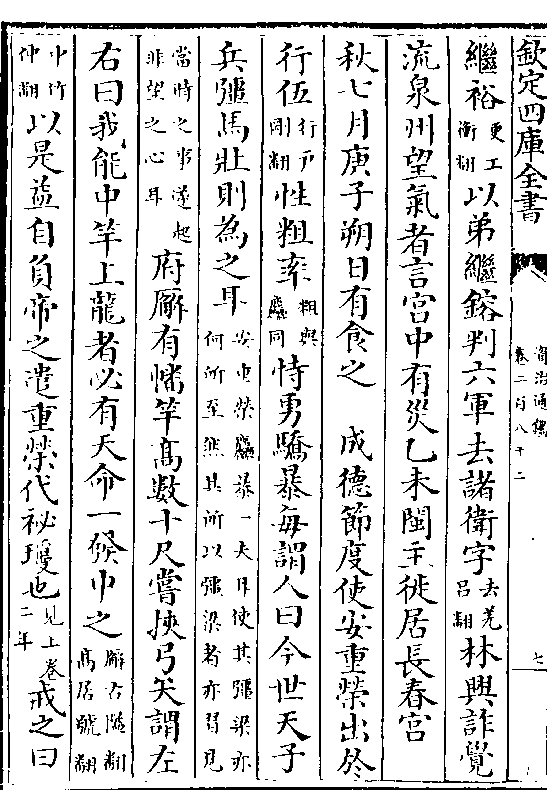 欽定四庫全書
資治通鑑
卷二百八十二
七
繼裕更工衡翻以弟繼鎔判六軍去諸衛字去羌呂翻林興詐覺
流泉州望氣者言宫中有災乙未閩主徙居長春宫
秋七月庚子朔日有食之 成德節度使安重榮出於
行伍行戸剛翻性粗率粗與麤同恃勇驕暴每謂人曰今世天子
兵彊馬壯則為之耳安重榮麤暴一夫耳使其彊梁亦何所至然其所以彊梁者亦習見
當時之事遂起非望之心耳府廨有幡竿高數十尺嘗挾弓矢謂左
右曰我能中竿上龍者必有天命一發中之廨古隘翻高居號翻
中竹仲翻以是益自負帝之遣重榮代祕瓊也見上卷二年戒之曰